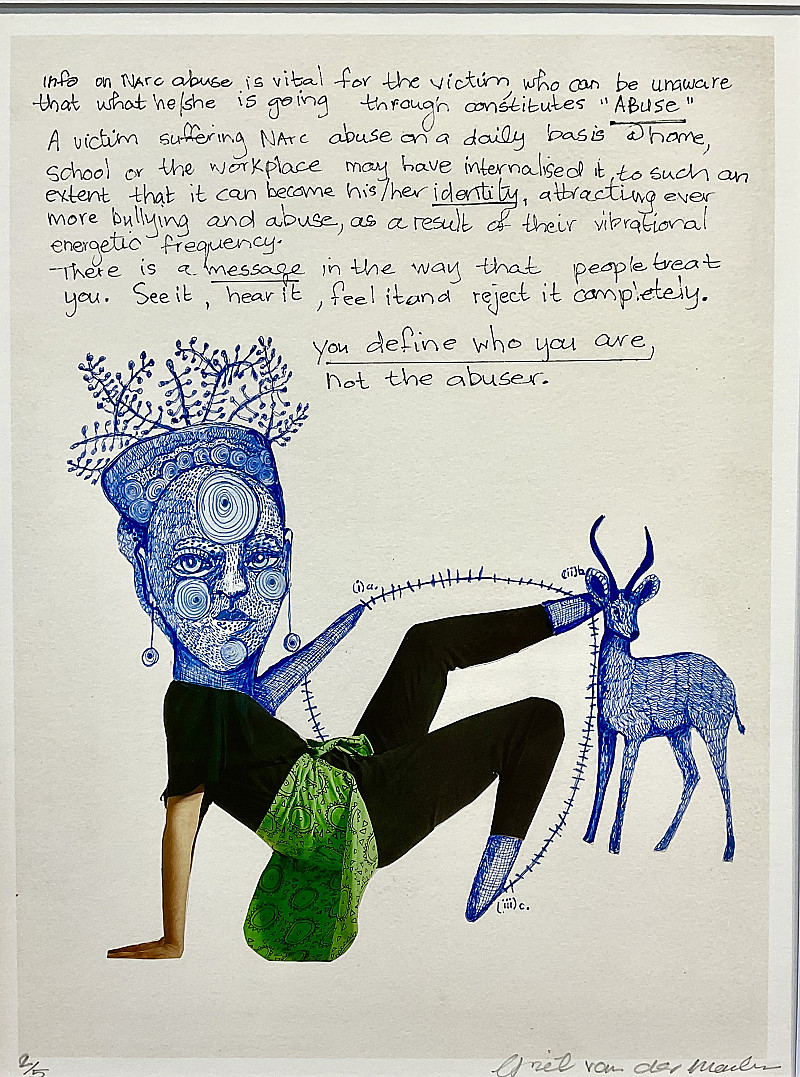 info on NArc abuse is vital for the victim, who can be unaware
that what he/she is going through constitutes "ABUSE"
A victim suffering NArc abuse on a daily basis @ home,
school or the workplace may have internalised it, to such an
extent that it can become his/her identity, attracting ever
more bullying and abuse, as a result of their vibrational
energetic frequency.
There is a message in the way that people treat
you. See it, hear it, feel it and reject it completely.
you define who you are,
not the abuser.
(i)a.
(ii)b.
(iii)c.
2/5
van der